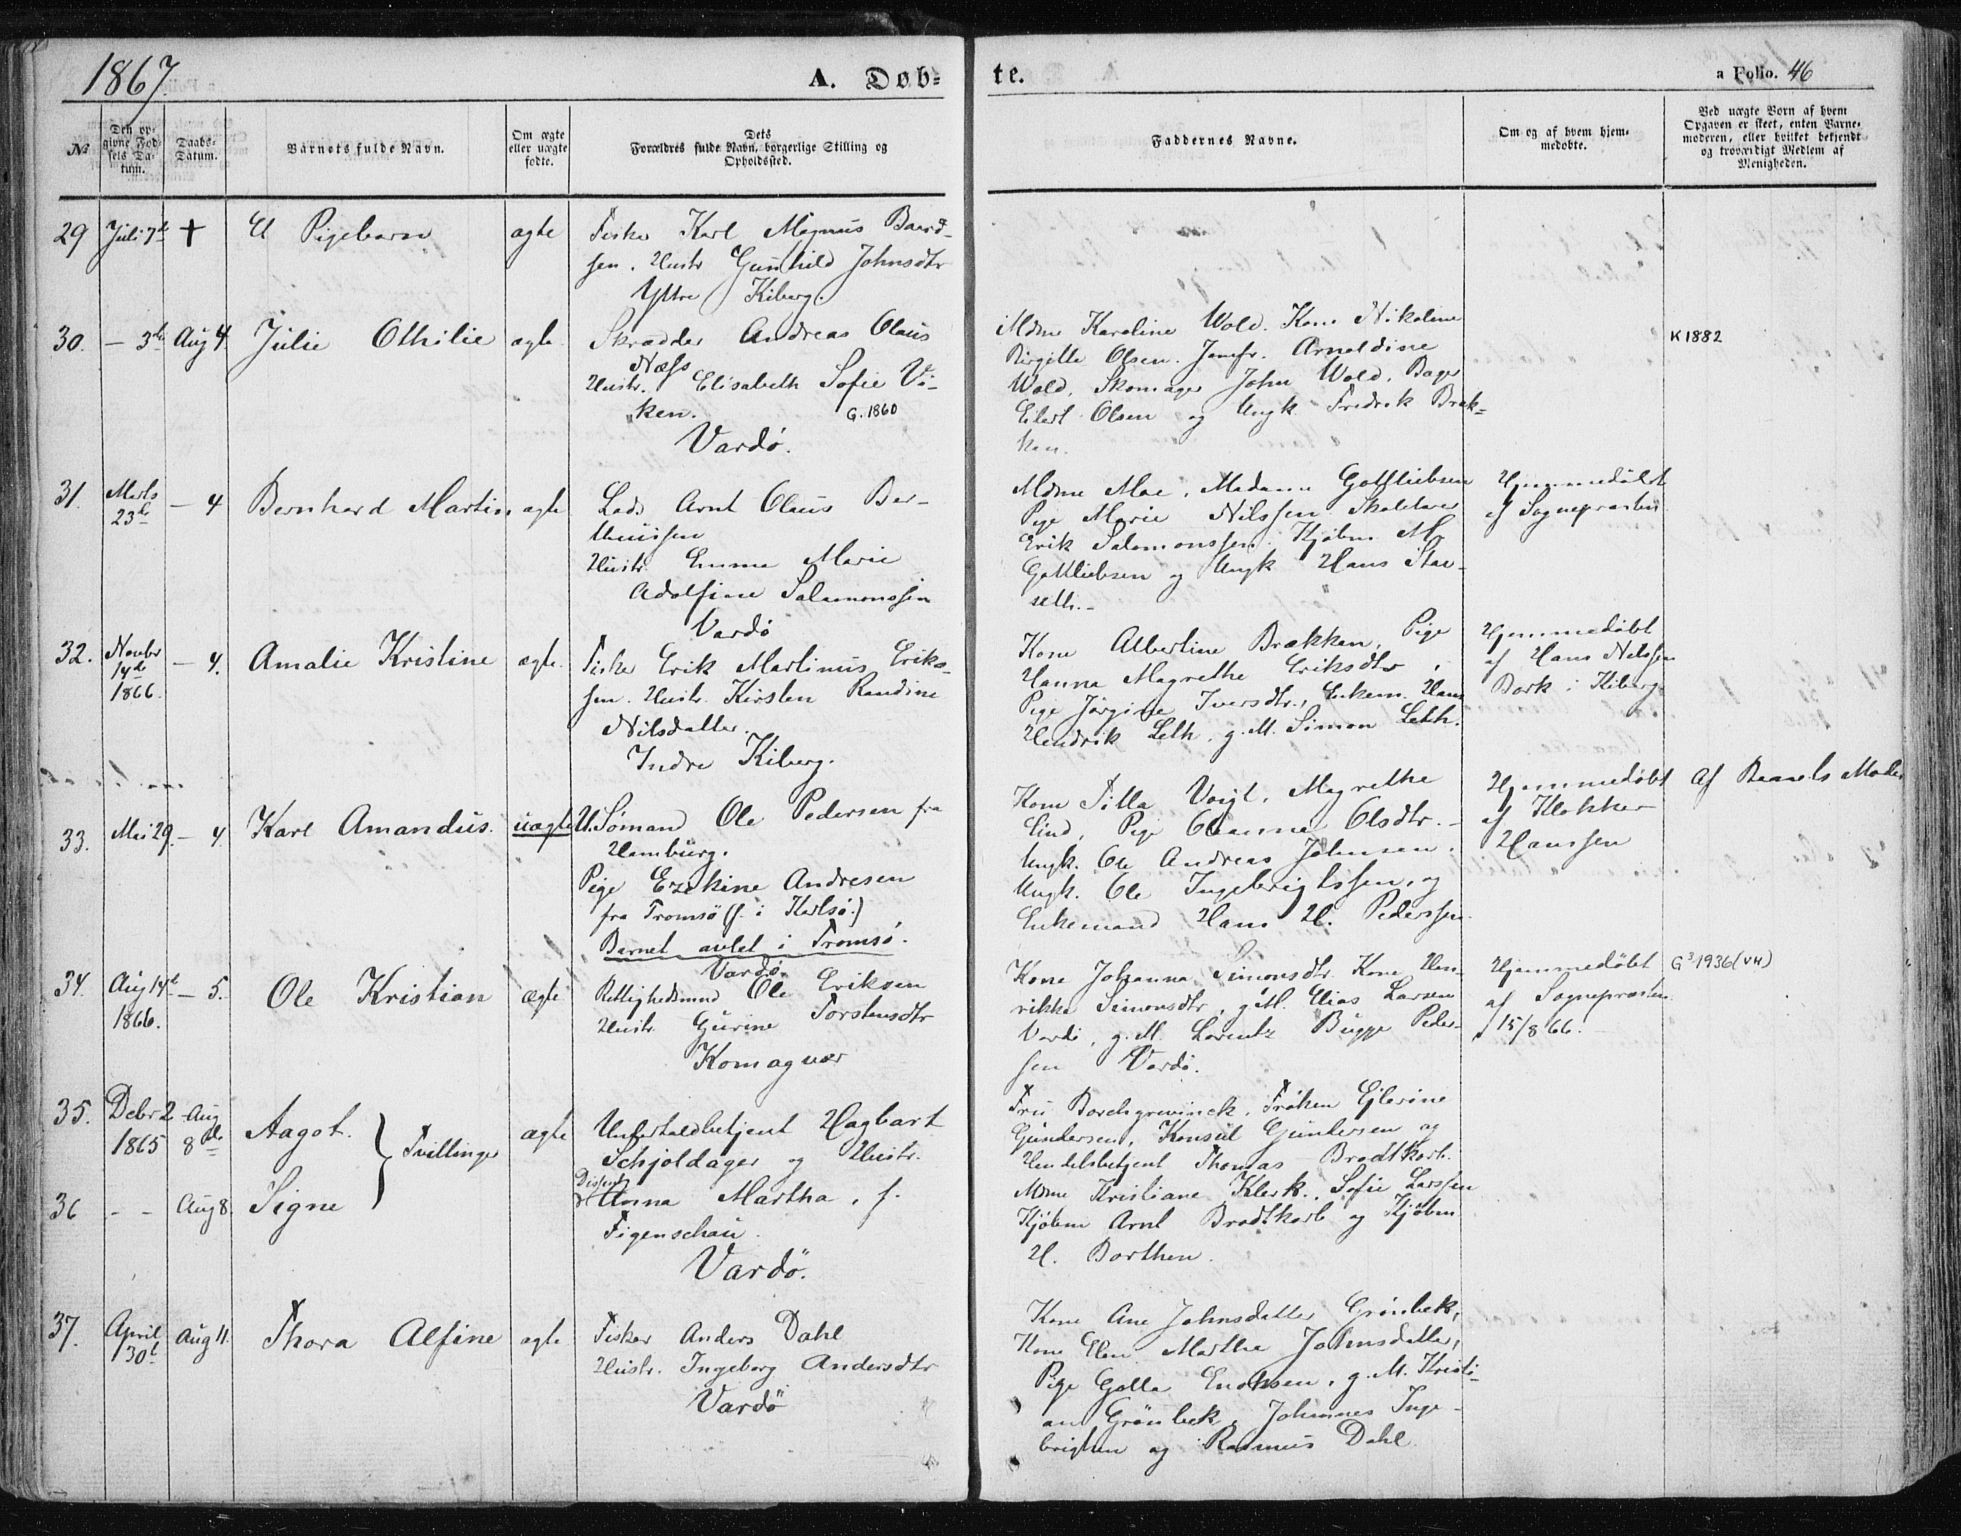 1867.
A. Døb-
te.
a Folio. 46
№
Den op-
givne Fød-
sels Da-
tum.
Daabs-
Datum.
Barnets fulde Navn.
Om ægte
eller uægte
fødte.
Dets
Forældres fulde Navn, borgerlige Stilling og
Opholdssted.
Faddernes Navne.
Om og af hvem hjem-
medøbte.
Ved uægte Børn af hvem
Opgaven er skeet, enten Barne-
moderen, eller hvilket bekjendt
og troværdigt Medlem af
Menigheden.
29
Juli 7de
+
Et Pigebarn
ægte
Fisker Karl Magnus Baard-
sen. Hustr Gunhild Johnsdtr
Yttre Kiberg.
30.
— 3de
Aug 4.
Julie Othilie
ægte
Skrædder Andreas Olaus
Næss
Hustr. Elisabeth Sofie Vi-
ken.
G. 1860
Vardö.
Mdme Karoline Wold. Kone Nikoline
Birgitte Olsen. Jomfr. Arnoldine
Wold, Skomager John Wold. Bager
Eilert Olsen og Ungk Fredrik Bræk-
ken.
K 1882
31.
Marts
23de
— 4
Bernhard Martin
ægte
Lods Arnt Olaus Ber-
thüissen
Hustr. Emma Marie
Adolfine Salamonssen
Vardö
Mdme Moe, Madame Gottliebsen
Pige Marie Nilssen Skolelærer
Erik Salomonssen. Kjøbm. M.
Gottliebsen og Ungk Hans Stor-
seth.-
Hjemmedøbt
af Sognepresten
32.
Novbr
14de
1866.
— 4.
Amalie Kristine
ægte.
Fisker Erik Martinus Erik-
sen. Hustr. Kirsten Randine
Nilsdatter.
Indre Kiberg.
Kone Albertine Brækken, Pige
Hanna Magrethe Eriksdtr,
Pige Jørgine Iversdtr., Enkem. Hans
Hendrik Leth, g. M. Simon Leth.
Hjemmedøbt
af Hans Nilssen
Bork i Kiberg
33.
Mai 29.
— 4.
Karl Amandus.
uægte
U. Sømand Ole Pedersen fra
Hamburg.
Pige Ezekine Andresen
fra Tromsö (f. i Karlsö.)
Barnet avlet i Tromsö.
Vardö.
Kone Tilla Voigt, Magrethe
Lind, Pige Oleanna Olsdtr.-
Ungk. Ole Andreas Johnsen.
Ungk. Ole Ingebrigtssen, og
Enkemand Hans H. Pederssen.
Hjemmedøbt
af Klokker
Hanssen
Af Barnets Moder
34.
Aug 14de
1866.
— 5.
Ole Kristian
ægte
Rettighedsmand Ole Eriksen
Hustr. Gurine Torstensdtr
Komagvær
Kone Johanna Simonsdtr. Kone Hen-
rikke Simonsdtr, g. M. Elias Larsen
Vardö, g. M. Lorentz Bugge Peder-
sen Vardö.
Hjemmedøbt
af Sognepresten
15/8 66.
G³ 1936 (VH)
35.
Debr 2
1865
- Aug
8de
Aagot.
Tvillinger
ægte
Undertoldbetjent Hagbart
Schjoldager og Hustr.
Dissent
Anna Martha, f.
Figenschau.
Vardö.
Fru Borchgrevinck. Frøken Ejlerine
Gundersen, Konsul Gundersen og
Handelsbetjent Thomas Brodtkorb.
36
- -
Aug 8.
Signe
Mdme Kristiane Klerk, Sofie Larssen
Kjøbm Arnt Brodtkorb og Kjøbm
H. Borthen.
37.
April
30te
Aug 11.
Thora Alfine
ægte
Fisker Anders Dahl
Hustr. Ingeborg Andersdtr
Vardö
Kone Ane Johnsdatter Grönbek,
Kone Elen Martha Johnsdatter,
Pige Golla Enoksen, g. M. Kristi-
an Grönbek, Johannes Inge-
brigtsen og Rasmus Dahl.